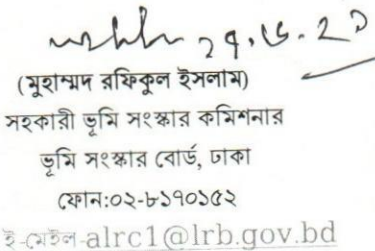 ২৭.৬.২১
(মুহাম্মদ রফিকুল ইসলাম)
সহকারী ভূমি সংস্কার কমিশনার
ভূমি সংস্কার বোর্ড, ঢাকা
ফোন:০২-৮১৭০১৫২
ই-মেইল-alrc1@lrb.gov.bd